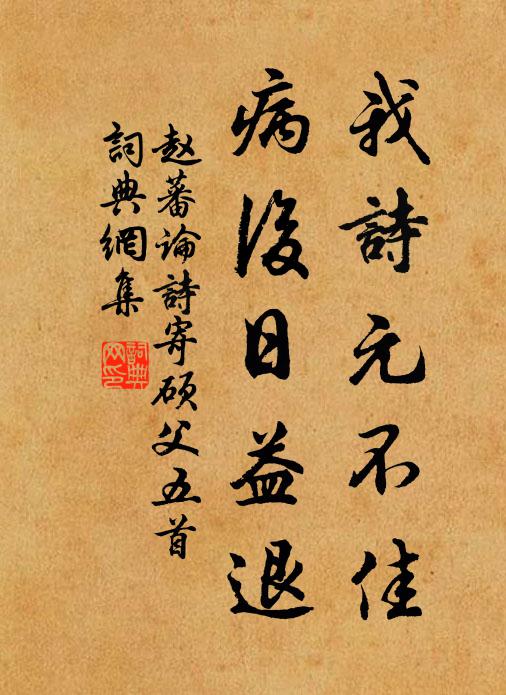 我詩元不佳
病後日益退
赵蕃论詩寄硕父五首
詞典網集
詞典网印